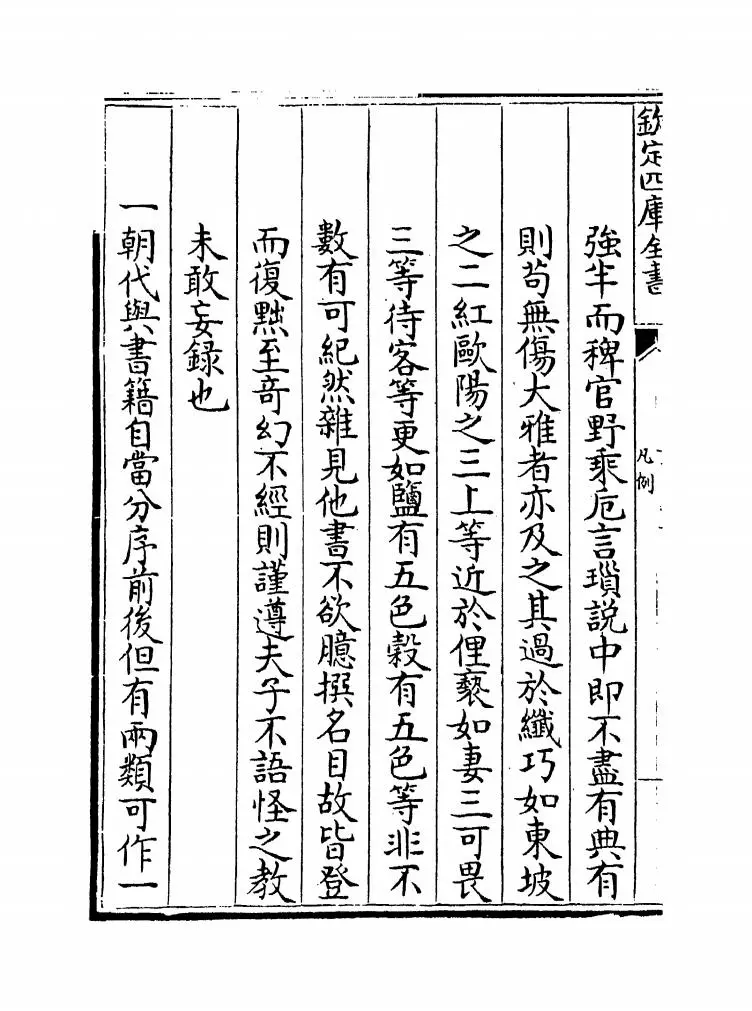 欽定四庫全書
凡例
強半而稗官野乘巵言瑣説中即不盡有典有
則茍無傷大雅者亦及之其過於纖巧如東坡
之二紅歐陽之三上等近於俚褻如妻三可畏
三等待客等更如鹽有五色穀有五色等非不
數有可紀然雜見他書不欲臆撰名目故皆登
而復黜至竒幻不經則謹遵夫子不語怪之教
未敢妄録也
一朝代與書籍自當分序前後但有兩類可作一